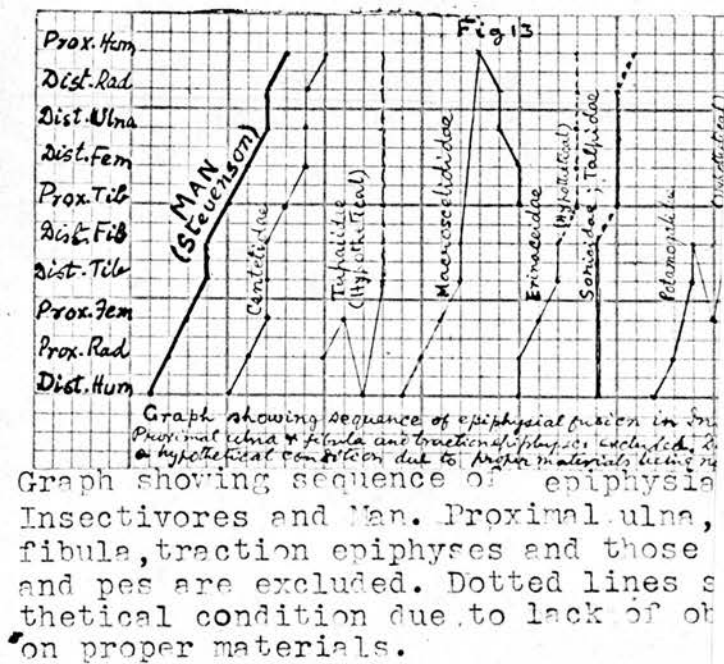 Fig 13
Prox. Hum
Dist. Rad
Dist. Ulna
Dist. Fem
Prox. Tib
Dist. Fib
Dist. Tib
Prox. Fem
Prox. Rad
Dist. Hum
MAN
(Stevenson)
Centetidae
Tupaiidae
(Hypothetical)
Macroscelididae
Erinaceidae
(Hypothetical)
Soricidae; Talpidae
Potamogalidae
(Hypothetical)
Graph showing sequence of epiphysial fusion in In
Proximal ulna & fibula and traction epiphyses excluded.
a hypothetical condition due to proper materials being n
Graph showing sequence of epiphysia
Insectivores and Man. Proximal ulna,
fibula, traction epiphyses and those
and pes are excluded. Dotted lines s
thetical condition due to lack of ob
on proper materials.